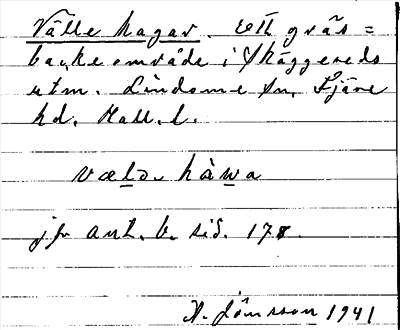 Välle hagar. Ett gräs=
backeområde i Skäggereds
utm. Lindome sn, Fjäre
hd. Hall. l.
væla hàwa
jfr ant. b. sid. 178.
A. Jönsson 1941